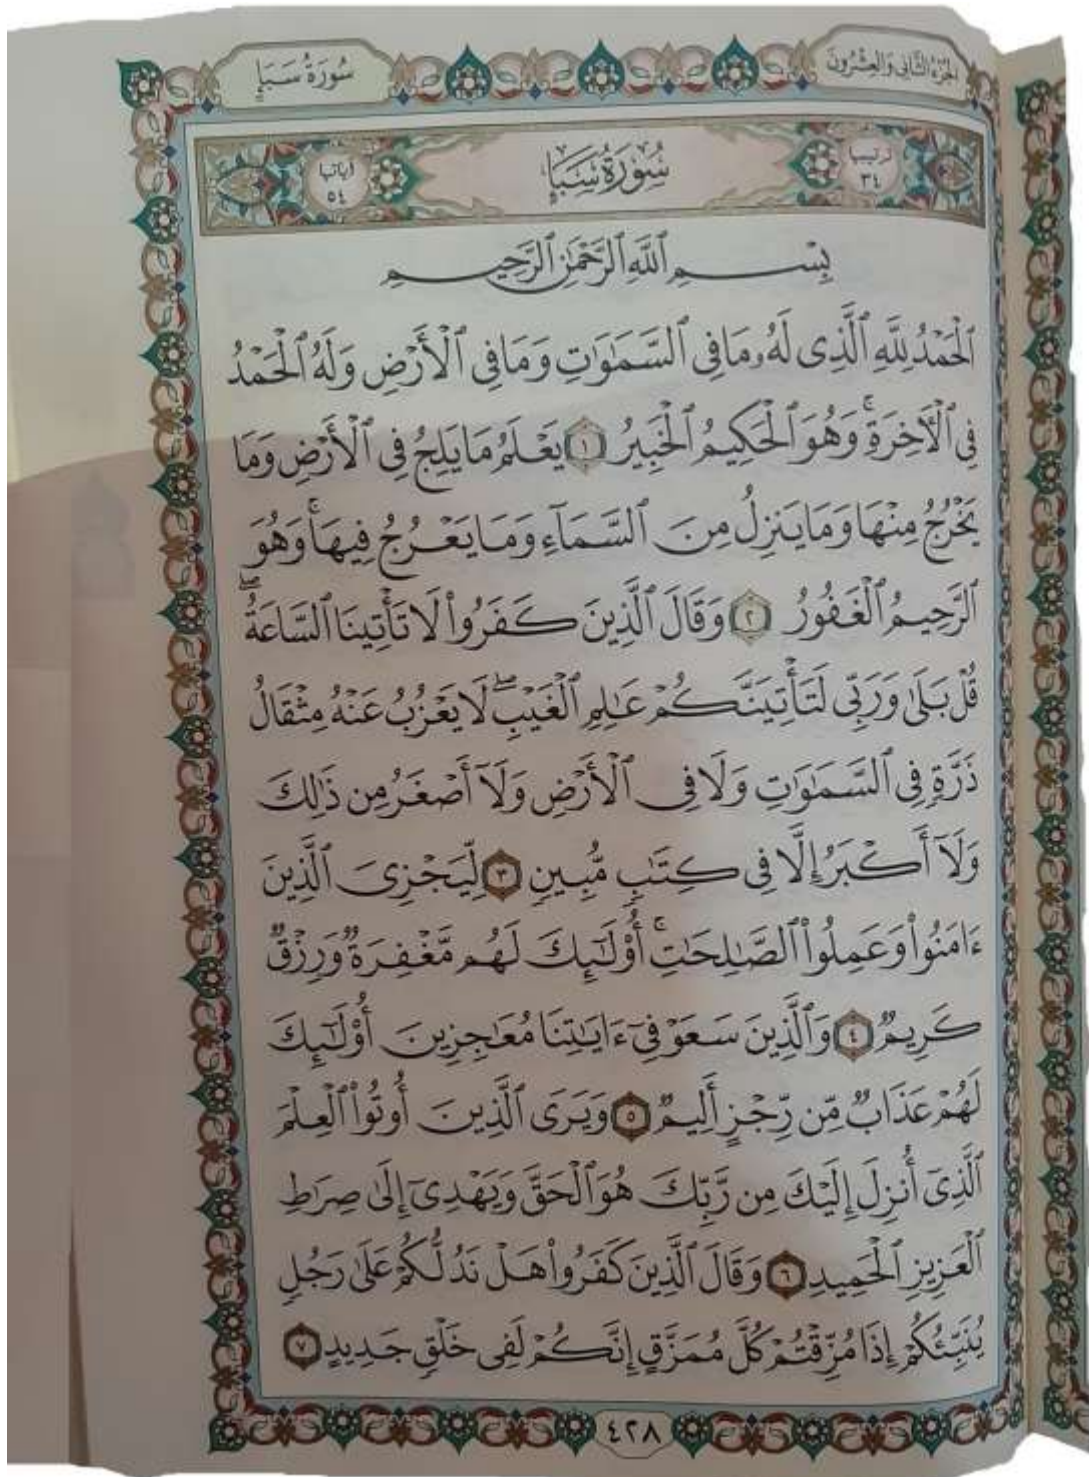 الجزء الثاني والعشرون
سُورَةُ سَبَإٍ
ترتيبها ٣٤
سُورَةُ سَبَإٍ
آياتها ٥٤
بِسْمِ ٱللَّهِ ٱلرَّحْمَٰنِ ٱلرَّحِيمِ
ٱلْحَمْدُ لِلَّهِ ٱلَّذِى لَهُۥ مَا فِى ٱلسَّمَٰوَٰتِ وَمَا فِى ٱلْأَرْضِ وَلَهُ ٱلْحَمْدُ
فِى ٱلْأَخِرَةِۚ وَهُوَ ٱلْحَكِيمُ ٱلْخَبِيرُ ١ يَعْلَمُ مَا يَلِجُ فِى ٱلْأَرْضِ وَمَا
يَخْرُجُ مِنْهَا وَمَا يَنزِلُ مِنَ ٱلسَّمَآءِ وَمَا يَعْرُجُ فِيهَاۚ وَهُوَ
ٱلرَّحِيمُ ٱلْغَفُورُ ٢ وَقَالَ ٱلَّذِينَ كَفَرُوا۟ لَا تَأْتِينَا ٱلسَّاعَةُۖ
قُلْ بَلَىٰ وَرَبِّى لَتَأْتِيَنَّكُمْ عَٰلِمِ ٱلْغَيْبِۖ لَا يَعْزُبُ عَنْهُ مِثْقَالُ
ذَرَّةٍ فِى ٱلسَّمَٰوَٰتِ وَلَا فِى ٱلْأَرْضِ وَلَآ أَصْغَرُ مِن ذَٰلِكَ
وَلَآ أَكْبَرُ إِلَّا فِى كِتَٰبٍ مُّبِينٍ ٣ لِّيَجْزِىَ ٱلَّذِينَ
ءَامَنُوا۟ وَعَمِلُوا۟ ٱلصَّٰلِحَٰتِۚ أُو۟لَٰٓئِكَ لَهُم مَّغْفِرَةٌ وَرِزْقٌ
كَرِيمٌ ٤ وَٱلَّذِينَ سَعَوْ فِىٓ ءَايَٰتِنَا مُعَٰجِزِينَ أُو۟لَٰٓئِكَ
لَهُمْ عَذَابٌ مِّن رِّجْزٍ أَلِيمٌ ٥ وَيَرَى ٱلَّذِينَ أُوتُوا۟ ٱلْعِلْمَ
ٱلَّذِىٓ أُنزِلَ إِلَيْكَ مِن رَّبِّكَ هُوَ ٱلْحَقَّ وَيَهْدِىٓ إِلَىٰ صِرَٰطِ
ٱلْعَزِيزِ ٱلْحَمِيدِ ٦ وَقَالَ ٱلَّذِينَ كَفَرُوا۟ هَلْ نَدُلُّكُمْ عَلَىٰ رَجُلٍ
يُنَبِّئُكُمْ إِذَا مُزِّقْتُمْ كُلَّ مُمَزَّقٍ إِنَّكُمْ لَفِى خَلْقٍ جَدِيدٍ ٧
٤٢٨